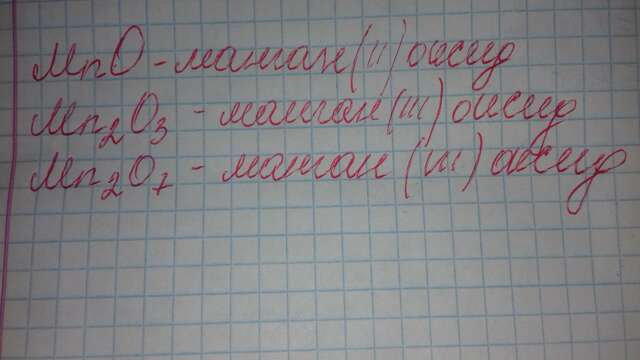 MnO - манган (II) оксид
Mn₂O₃ - манган (III) оксид
Mn₂O₇ - манган (VII) оксид